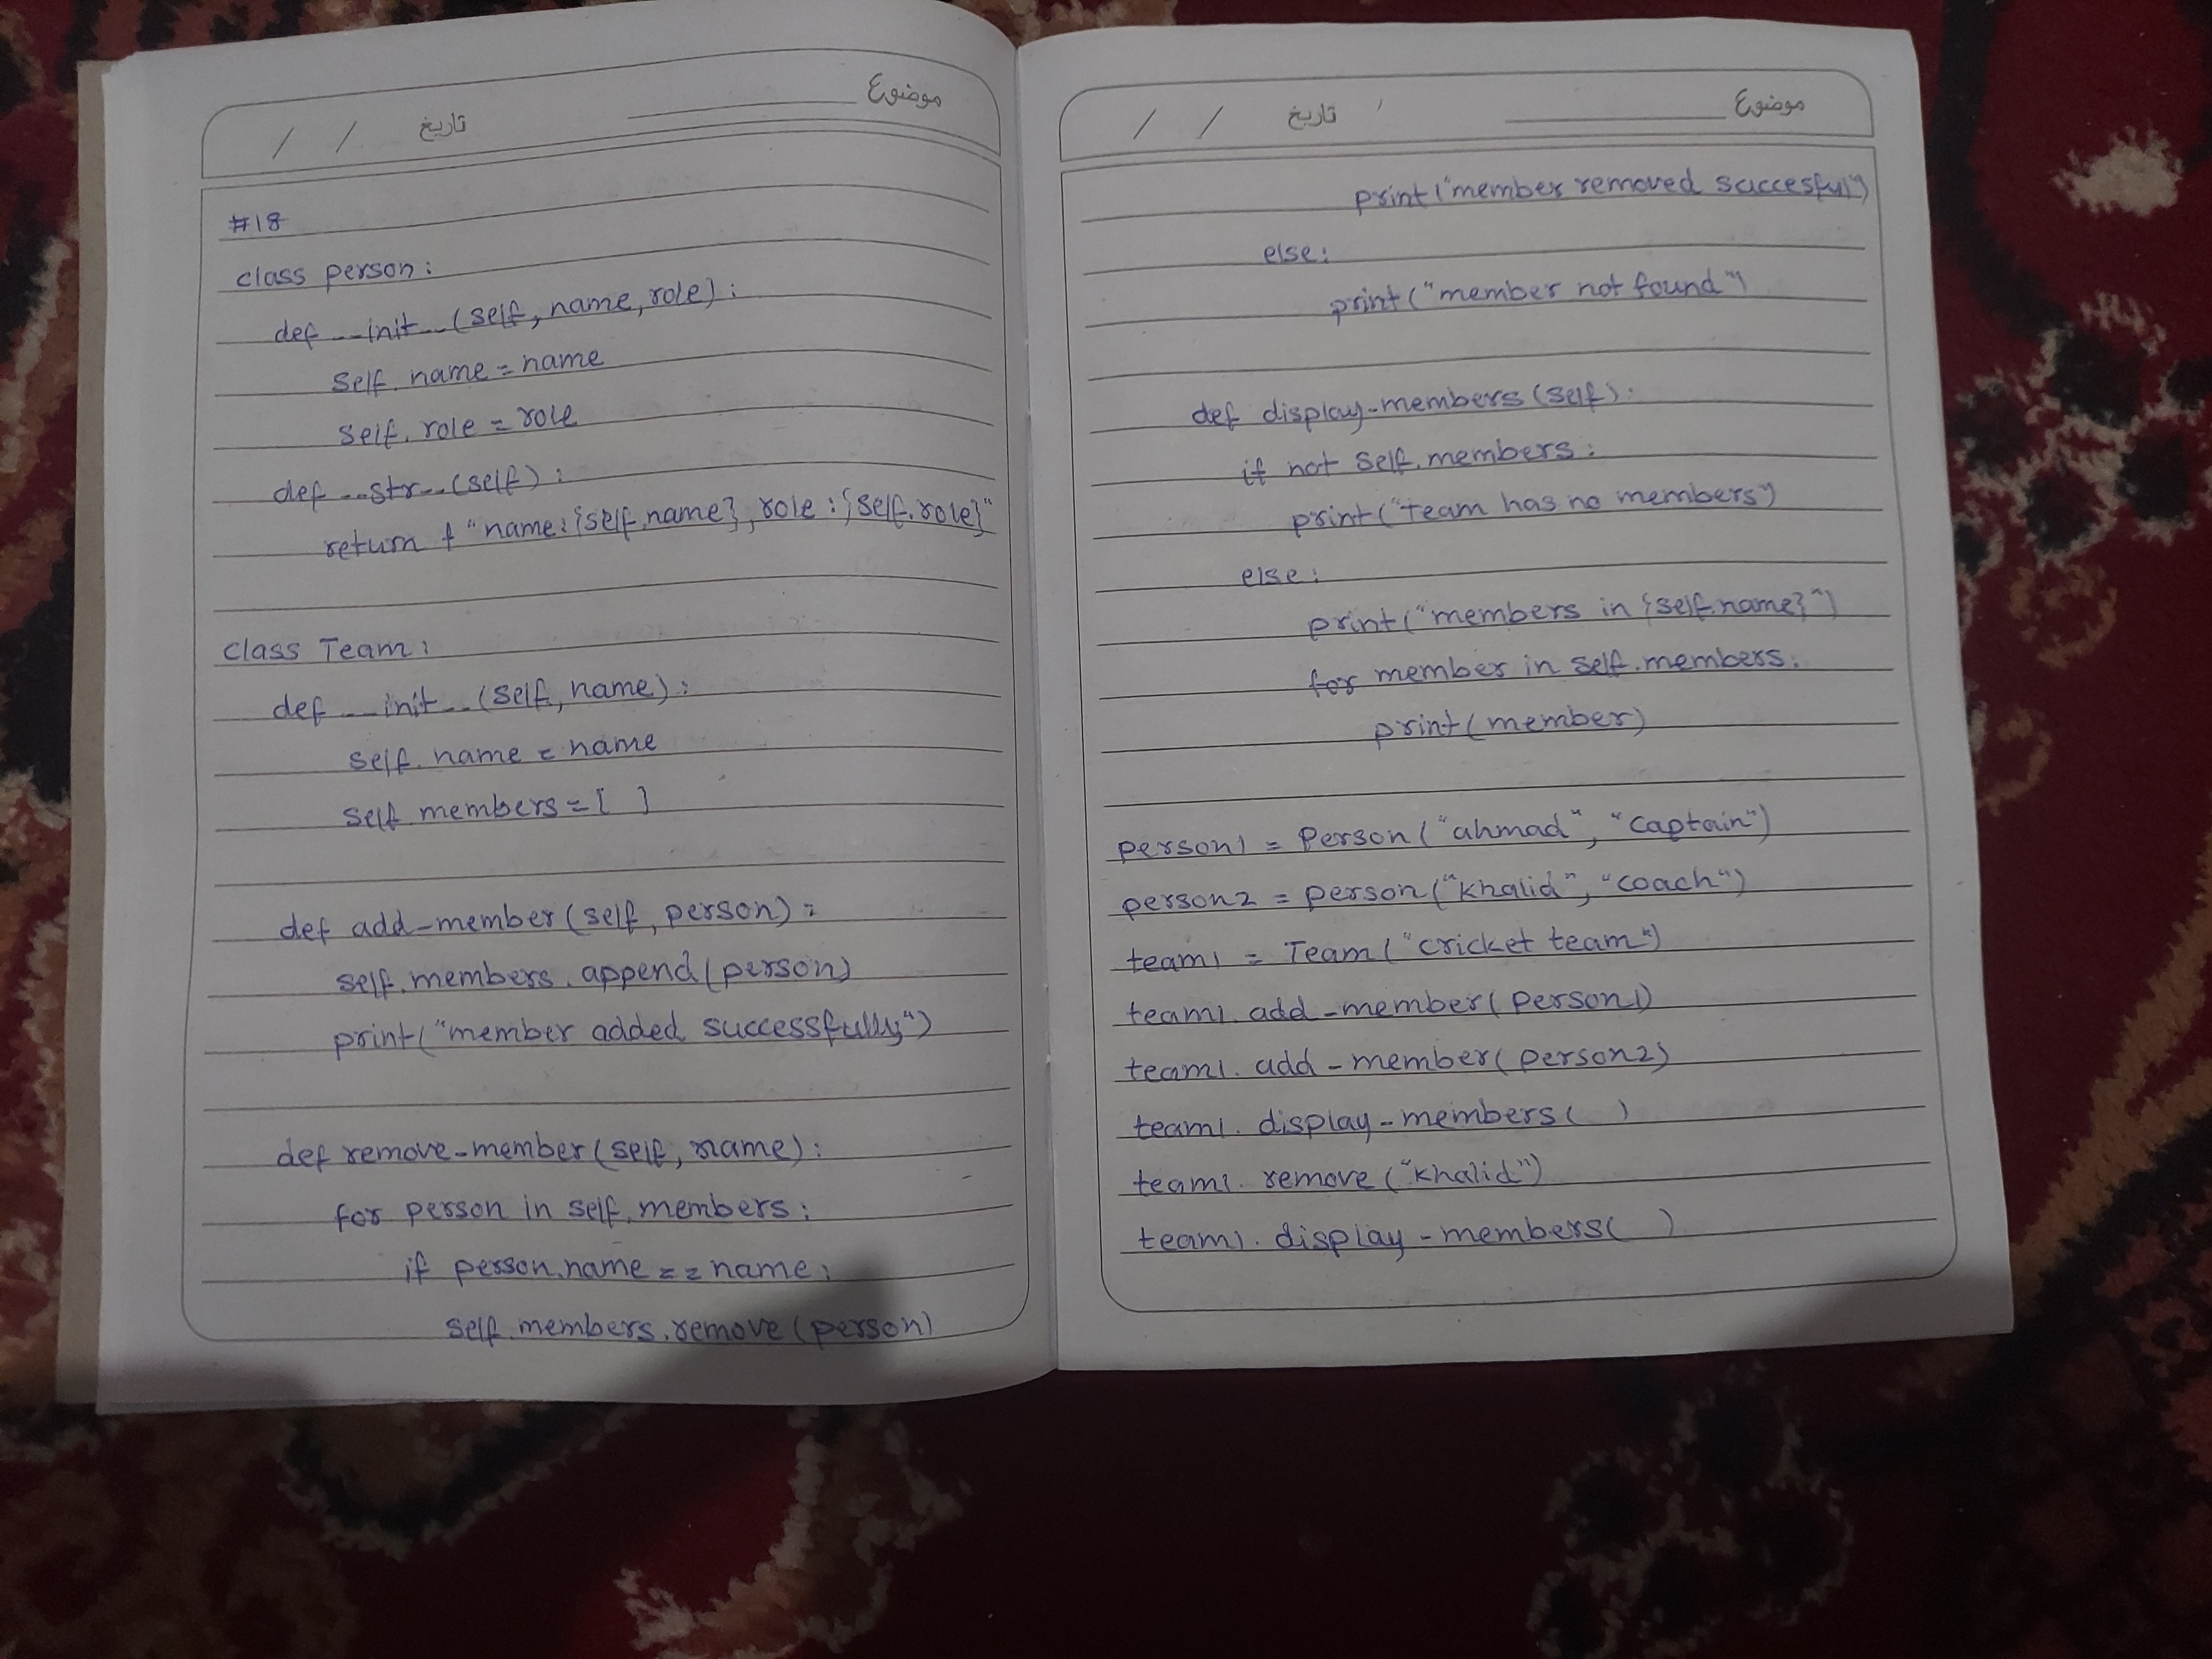 / / تاریخ موضوع
#18
class person:
def __init__(self, name, role):
self.name = name
self.role = role
def __str__(self):
return f "name:{self.name}, role:{self.role}"
class Team:
def __init__(self, name):
self.name = name
self.members = [ ]
def add_member(self, person):
self.members.append(person)
print("member added successfully")
def remove_member(self, name):
for person in self.members:
if person.name == name:
self.members.remove(person)
/ / تاریخ موضوع
print("member removed succesful")
else:
print("member not found")
def display_members(self):
if not self.members:
print("team has no members")
else:
print("members in {self.name}")
for member in self.members:
print(member)
person1 = Person("ahmad", "captain")
person2 = person("khalid", "coach")
team1 = Team("cricket team")
team1.add_member(person1)
team1.add_member(person2)
team1.display_members( )
team1.remove("khalid")
team1.display_members( )